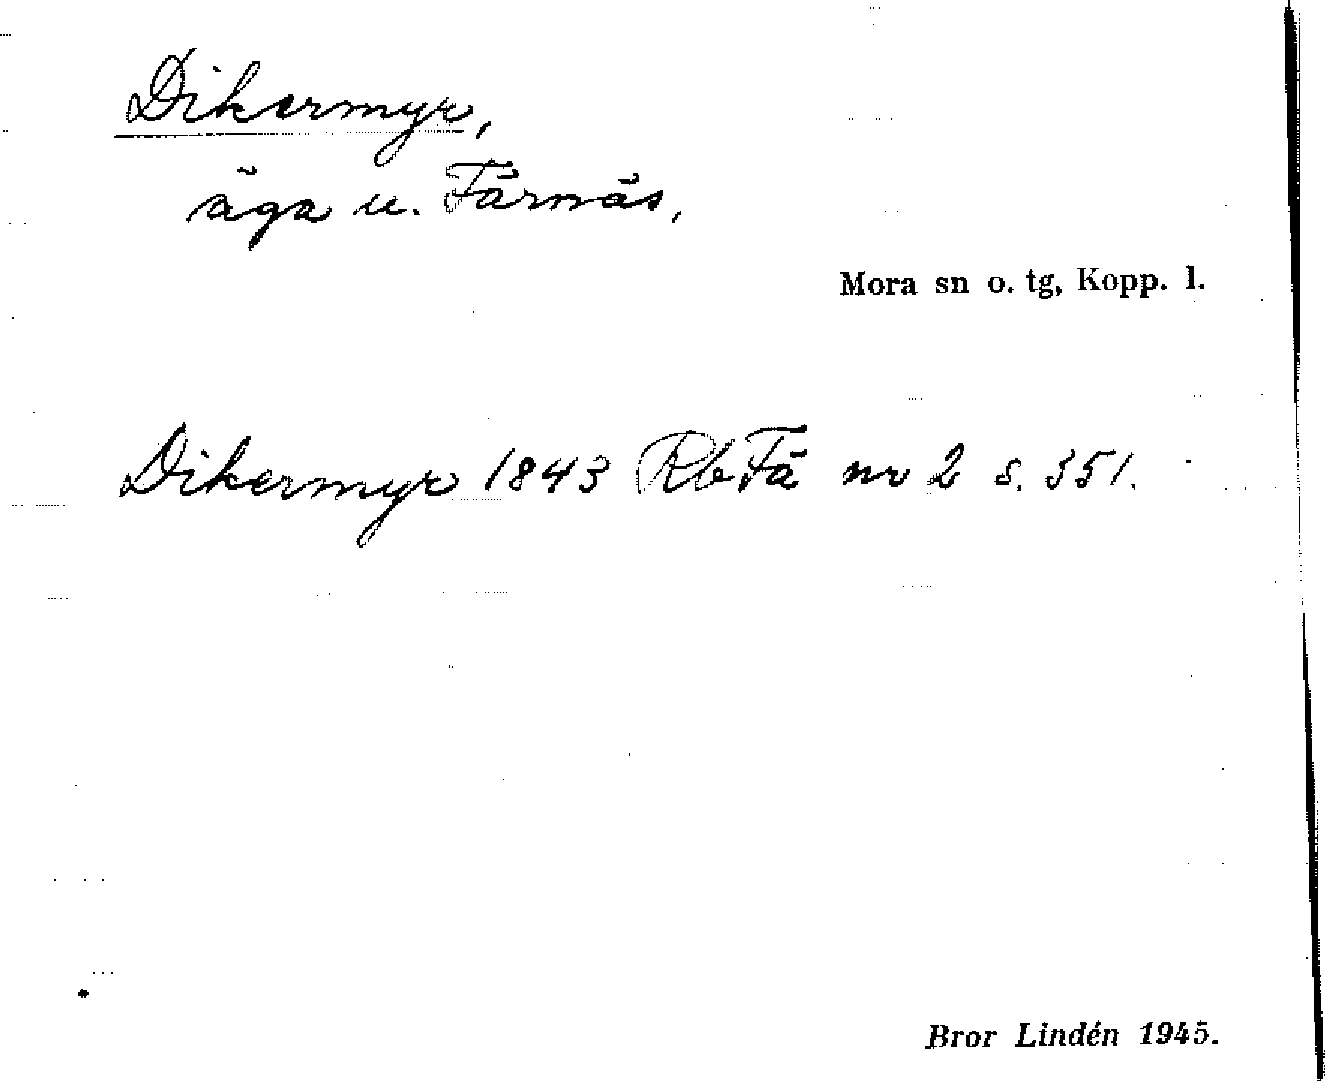 Dikermyr,
äga u. Färnäs,
Mora sn o. tg, Kopp. l.
Dikermyr 1843 RbFä nr 2 s. 351.
Bror Lindén 1945.